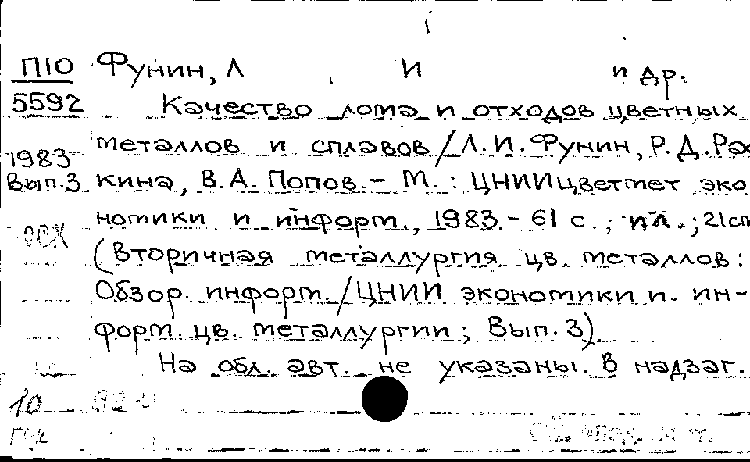 П10 Фунин, Л И и др.
5592 Качество лома и отходов цветных
металлов и сплавов / Л. И. Фунин, Р. Д. Рэ
1983
Вып. 3 кина, В. А. Попов. – М. : ЦНИИцветмет эко
номики и информ., 1983. – 61 с. ; ил. ; 21 см
(Вторичная металлургия цв. металлов :
Обзор. информ. / ЦНИИ экономики и. ин-
форм. цв. металлургии ; Вып. 3).
На обл. авт. не указаны. В надзаг.
10